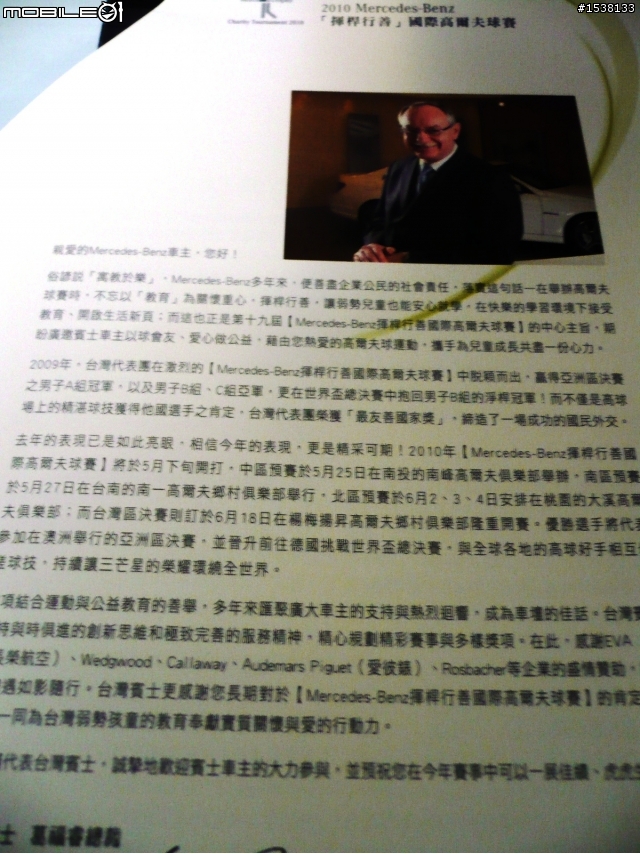 MOBILE01
#1538133
Charity Tournament 2010
2010 Mercedes-Benz
「揮桿行善」國際高爾夫球賽
親愛的Mercedes-Benz車主，您好！
俗諺說「寓教於樂」，Mercedes-Benz多年來，便善盡企業公民的社會責任，落實這句話—在舉辦高爾夫
球賽時，不忘以「教育」為關懷重心，揮桿行善，讓弱勢兒童也能安心就學，在快樂的學習環境下接受
教育、開啟生活新頁；而這也正是第十九屆【Mercedes-Benz揮桿行善國際高爾夫球賽】的中心主旨，期
盼廣邀賓士車主以球會友、愛心做公益，藉由您熱愛的高爾夫球運動，攜手為兒童成長共盡一份心力。
2009年，台灣代表團在激烈的【Mercedes-Benz揮桿行善國際高爾夫球賽】中脫穎而出，贏得亞洲區決賽
之男子A組冠軍，以及男子B組、C組亞軍，更在世界盃總決賽中抱回男子B組的淨桿冠軍！而不僅是高球
場上的精湛球技獲得他國選手之肯定，台灣代表團榮獲「最友善國家獎」，締造了一場成功的國民外交。
去年的表現已是如此亮眼，相信今年的表現，更是精采可期！2010年【Mercedes-Benz揮桿行善國
際高爾夫球賽】將於5月下旬開打，中區預賽於5月25日在南投的南峰高爾夫俱樂部舉辦，南區預賽
於5月27日在台南的南一高爾夫鄉村俱樂部舉行，北區預賽於6月2、3、4日安排在桃園的大溪高爾
夫俱樂部；而台灣區決賽則訂於6月18日在楊梅揚昇高爾夫鄉村俱樂部隆重開賽。優勝選手將代表
參加在澳洲舉行的亞洲區決賽，並晉升前往德國挑戰世界盃總決賽，與全球各地的高球好手相互
球技，持續讓三芒星的榮耀環繞全世界。
項結合運動與公益教育的善舉，多年來匯聚廣大車主的支持與熱烈迴響，成為車壇的佳話。台灣賓
持與時俱進的創新思維和極致完善的服務精神，精心規劃精彩賽事與多樣獎項。在此，感謝EVA
長榮航空）、Wedgwood、Callaway、Audemars Piguet（愛彼錶）、Rosbacher等企業的盛情贊助，
遇如影隨行。台灣賓士更感謝您長期對於【Mercedes-Benz揮桿行善國際高爾夫球賽】的肯定
一同為台灣弱勢孩童的教育奉獻實質關懷與愛的行動力。
代表台灣賓士，誠摯地歡迎賓士車主的大力參與，並預祝您在今年賽事中可以一展佳績、虎虎生
士 葛福睿總裁